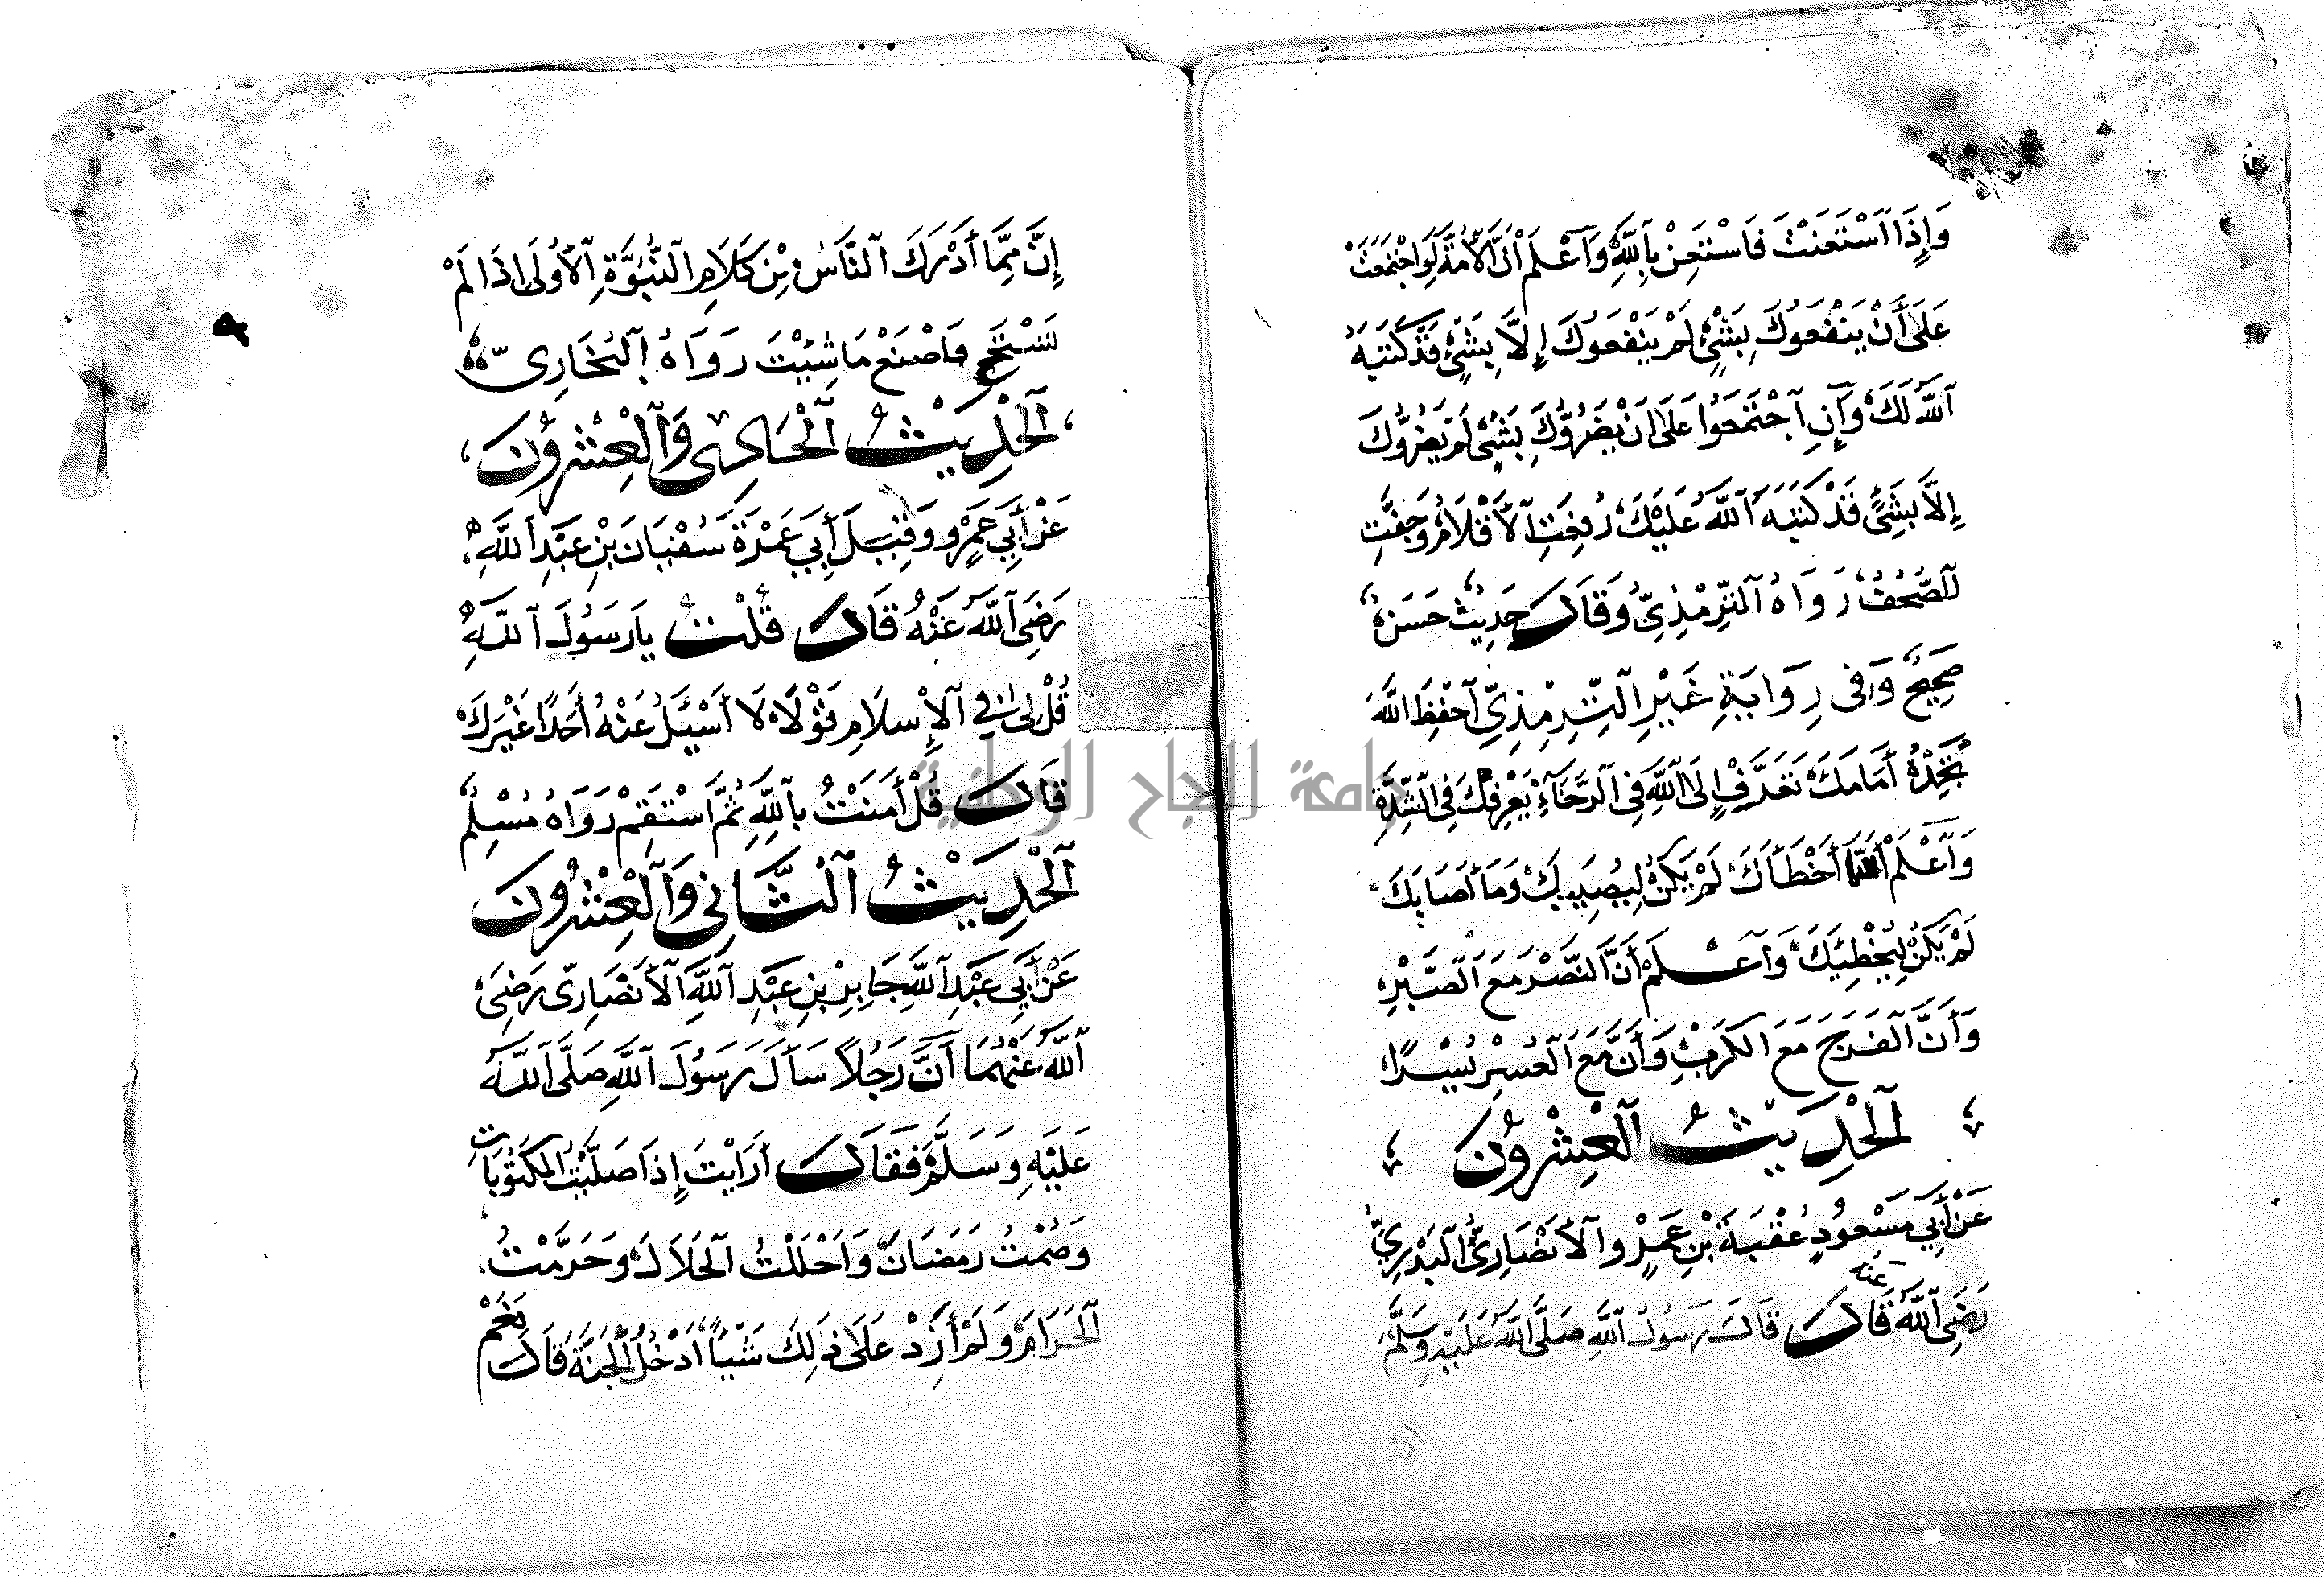 وَإِذَا اسْتَعَنْتَ فَاسْتَعِنْ بِاللَّهِ وَاعْلَمْ أَنَّ الْأُمَّةَ لَوِ اجْتَمَعَتْ
عَلَى أَنْ يَنْفَعُوكَ بِشَيْءٍ لَمْ يَنْفَعُوكَ إِلَّا بِشَيْءٍ قَدْ كَتَبَهُ
اللَّهُ لَكَ وَإِنِ اجْتَمَعُوا عَلَى أَنْ يَضُرُّوكَ بِشَيْءٍ لَمْ يَضُرُّوكَ
إِلَّا بِشَيْءٍ قَدْ كَتَبَهُ اللَّهُ عَلَيْكَ رُفِعَتِ الْأَقْلَامُ وَجَفَّتِ
الصُّحُفُ رَوَاهُ التِّرْمِذِيُّ وَقَالَ حَدِيثٌ حَسَنٌ
صَحِيحٌ وَفِي رِوَايَةِ غَيْرِ التِّرْمِذِيِّ احْفَظِ اللَّهَ
تَجِدْهُ أَمَامَكَ تَعَرَّفْ إِلَى اللَّهِ فِي الرَّخَاءِ يَعْرِفْكَ فِي الشِّدَّةِ
وَاعْلَمْ أَخْطَأَكَ لَمْ يَكُنْ لِيُصِيبَكَ وَمَا أَصَابَكَ
لَمْ يَكُنْ لِيُخْطِئَكَ وَاعْلَمْ أَنَّ النَّصْرَ مَعَ الصَّبْرِ
وَأَنَّ الْفَرَجَ مَعَ الْكَرْبِ وَأَنَّ مَعَ الْعُسْرِ يُسْرًا
الْحَدِيثُ الْعِشْرُونَ
عَنْ أَبِي مَسْعُودٍ عُقْبَةَ بْنِ عَمْرٍو الْأَنْصَارِيِّ الْبَدْرِيِّ
رَضِيَ اللَّهُ عنه قَالَ قَالَ رَسُولُ اللَّهِ صَلَّى اللَّهُ عَلَيْهِ وَسَلَّمَ
ان
إِنَّ مِمَّا أَدْرَكَ النَّاسُ مِنْ كَلَامِ النُّبُوَّةِ الْأُولَى إِذَا لَمْ
تَسْتَحِي فَاصْنَعْ مَا شِئْتَ رَوَاهُ الْبُخَارِيُّ
الْحَدِيثُ الْحَادِي وَالْعِشْرُونَ
عَنْ أَبِي عَمْرٍو وَقِيلَ أَبِي عَمْرَةَ سُفْيَانَ بْنِ عَبْدِ اللَّهِ
رَضِيَ اللَّهُ عَنْهُ قَالَ قُلْتُ يَا رَسُولَ اللَّهِ
قُلْ لِي فِي الْإِسْلَامِ قَوْلًا لَا أَسْئَلُ عَنْهُ أَحَدًا غَيْرَكَ
قَالَ قُلْ أَمَنْتُ بِاللَّهِ ثُمَّ اسْتَقِمْ رَوَاهُ مُسْلِمٌ
الْحَدِيثُ الثَّانِي وَالْعِشْرُونَ
عَنْ أَبِي عَبْدِ اللَّهِ جَابِرِ بْنِ عَبْدِ اللَّهِ الْأَنْصَارِي رَضِيَ
اللَّهُ عَنْهُمَا أَنَّ رَجُلًا سَأَلَ رَسُولَ اللَّهِ صَلَّى اللَّهُ
عَلَيْهِ وَسَلَّمَ فَقَالَ أَرَأَيْتَ إِذَا صَلَّيْتُ الْمَكْتُوبَاتِ
وَصُمْتُ رَمَضَانَ وَأَحْلَلْتُ الْحَلَالَ وَحَرَّمْتُ
الْحَرَامَ وَلَمْ أَزِدْ عَلَى ذَلِكَ شَيْئًا أَدْخُلُ الْجَنَّةَ قَالَ نَعَمْ
٩
جامعة النجاح الوطنية